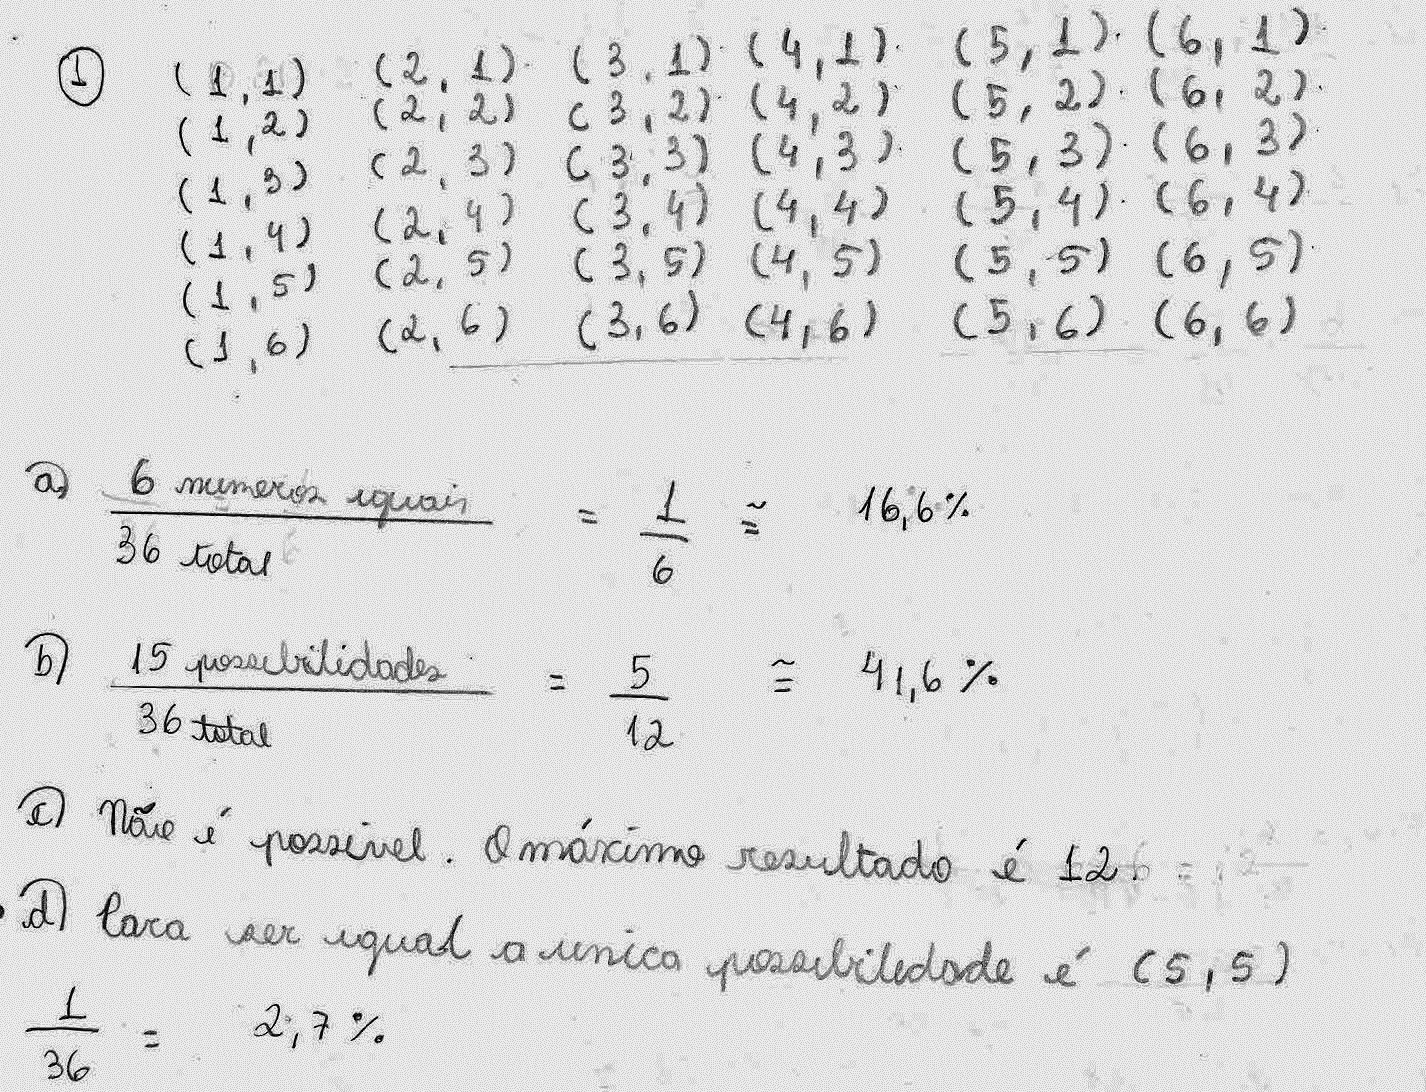 1 (1,1) (2,1) (3,1) (4,1) (5,1) (6,1)
(1,2) (2,2) (3,2) (4,2) (5,2) (6,2)
(1,3) (2,3) (3,3) (4,3) (5,3) (6,3)
(1,4) (2,4) (3,4) (4,4) (5,4) (6,4)
(1,5) (2,5) (3,5) (4,5) (5,5) (6,5)
(1,6) (2,6) (3,6) (4,6) (5,6) (6,6)
a) 6 numeros iguais / 36 total = 1/6 ≅ 16,6%
b) 15 possibilidades / 36 total = 5/12 ≅ 41,6%
c) Não é possivel. O máximo resultado é 12.
d) Para ser igual a unica possibilidade é (5,5)
1/36 = 2,7%